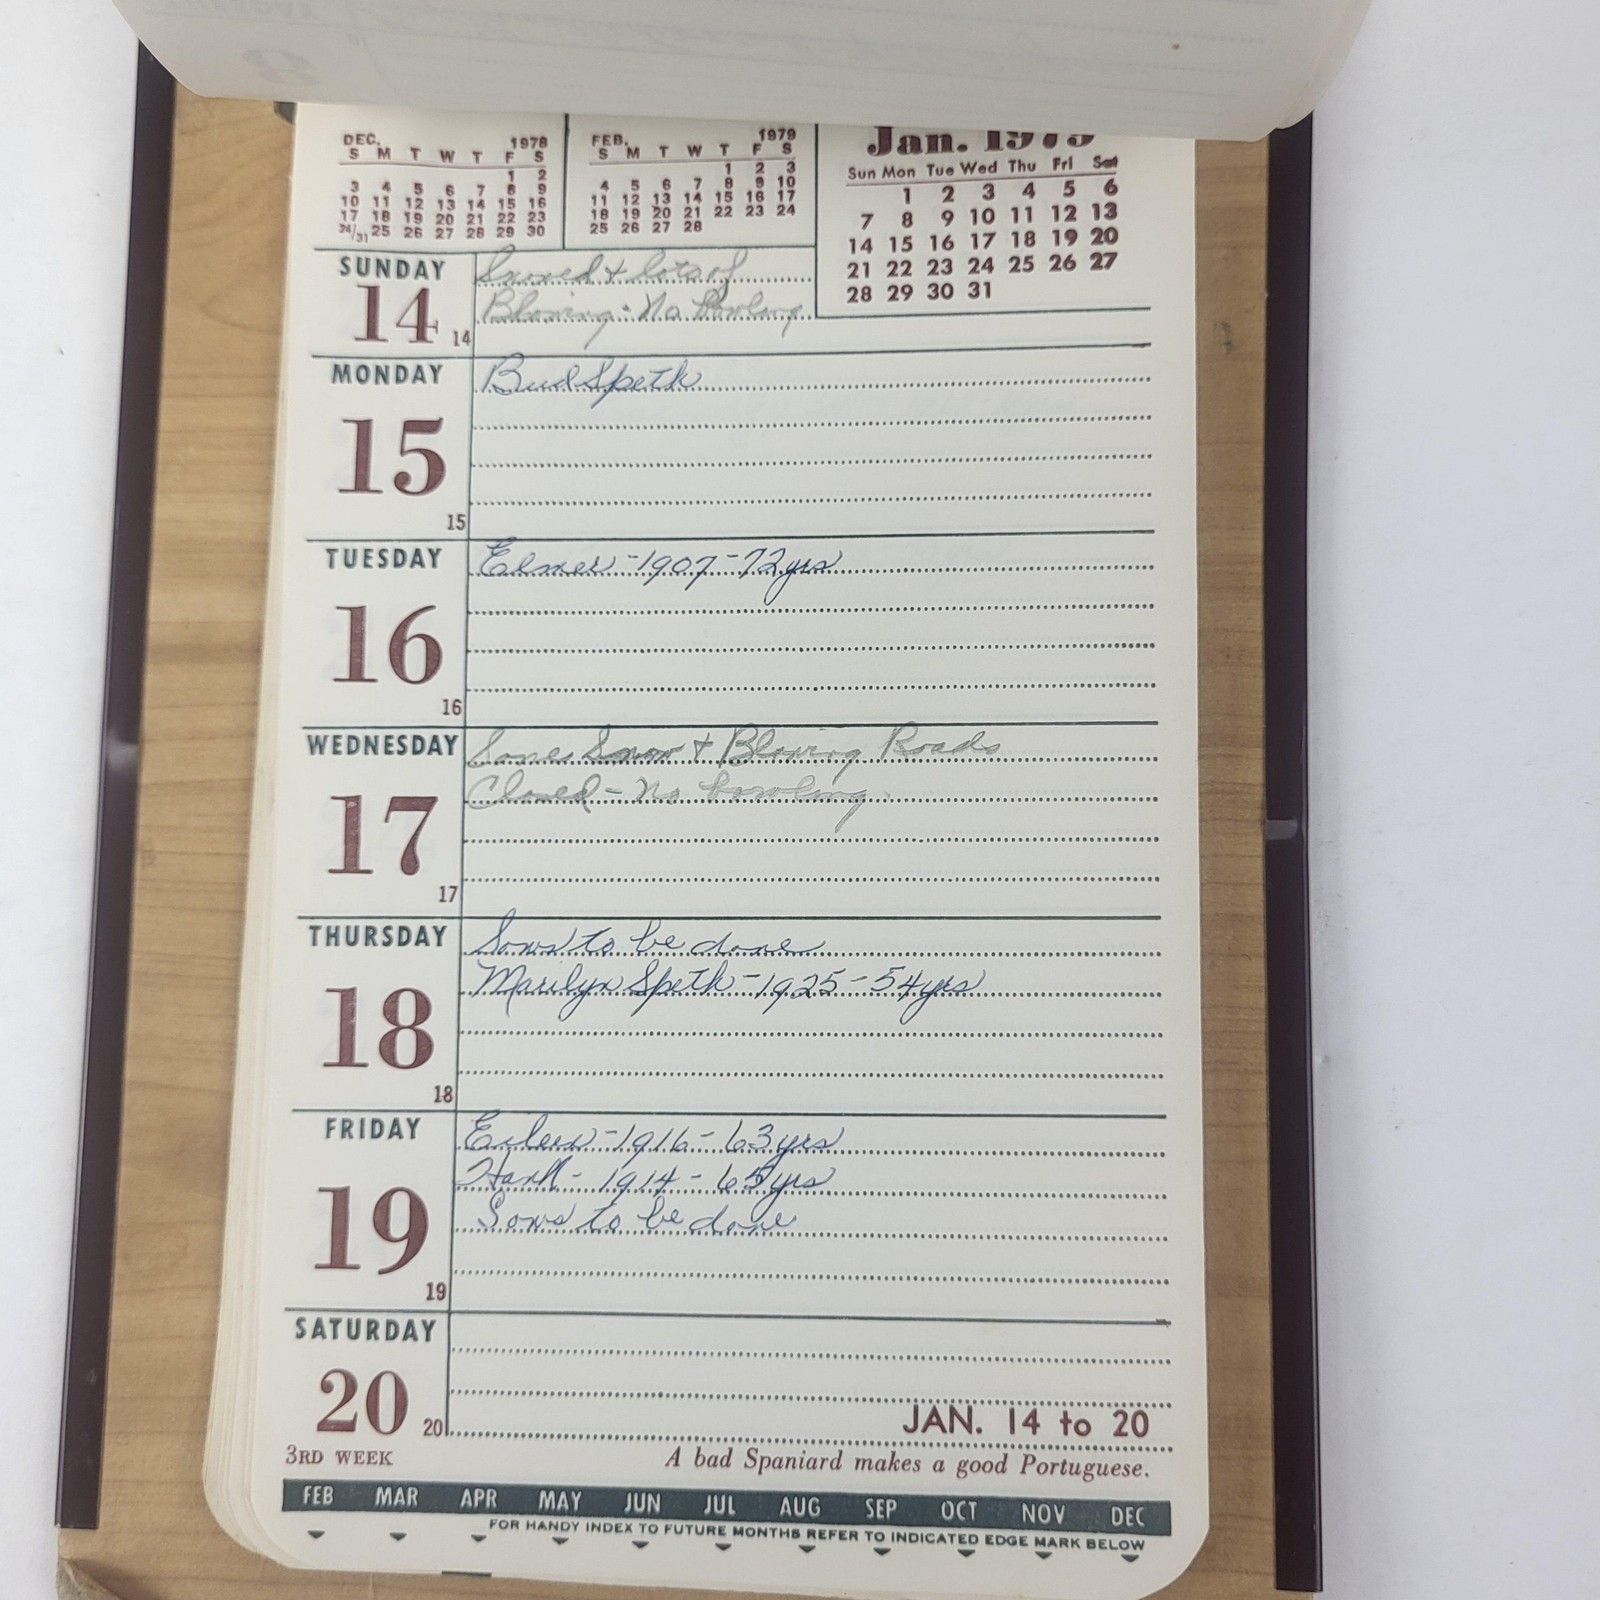 DEC. 1978
S M T W T F S
1 2
3 4 5 6 7 8 9
10 11 12 13 14 15 16
17 18 19 20 21 22 23
24/31 25 26 27 28 29 30
FEB. 1979
S M T W T F S
1 2 3
4 5 6 7 8 9 10
11 12 13 14 15 16 17
18 19 20 21 22 23 24
25 26 27 28
Jan. 1979
Sun Mon Tue Wed Thu Fri Sat
1 2 3 4 5 6
7 8 9 10 11 12 13
14 15 16 17 18 19 20
21 22 23 24 25 26 27
28 29 30 31
SUNDAY
14
14
Snowed + lots of
Blowing - No Bowling
MONDAY
15
15
Bud Speth
TUESDAY
16
16
Elmer - 1907 - 72 yrs
WEDNESDAY
17
17
Some Snow + Blowing Roads
Closed - No bowling.
THURSDAY
18
18
Sows to be done
Marilyn Speth - 1925 - 54 yrs
FRIDAY
19
19
Eileen - 1916 - 63 yrs
Hank - 1914 - 65 yrs
Sows to be done
SATURDAY
20
20
JAN. 14 to 20
3RD WEEK
A bad Spaniard makes a good Portuguese.
FEB MAR APR MAY JUN JUL AUG SEP OCT NOV DEC
FOR HANDY INDEX TO FUTURE MONTHS REFER TO INDICATED EDGE MARK BELOW